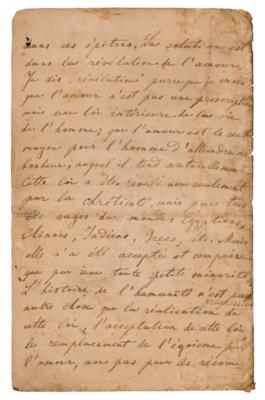 dans ses épitres. La solution est
dans la révélation de l'amour.
Je dis "révélation" parce que je crois
que l'amour n'est pas une prescription
mais une loi intérieure de la vie
de l'homme; que l'amour est le seul
moyen pour l'homme d'atteindre au
bonheur, auquel il tend naturellement.
Cette loi a été révélé non seulement
par la Chrétienté, mais par tous
les sages du monde: Egyptiens,
Chinois, Indiens, Grecs, etc. Mais
elle n'a été acceptée et comprise
que par une toute petite minorité
L'histoire de l'humanité n'est pas
autre chose que la réalisation de
cette loi, l'acceptation de cette loi
le remplacement de l'égoisme par
l'amour, non pas pour les récom